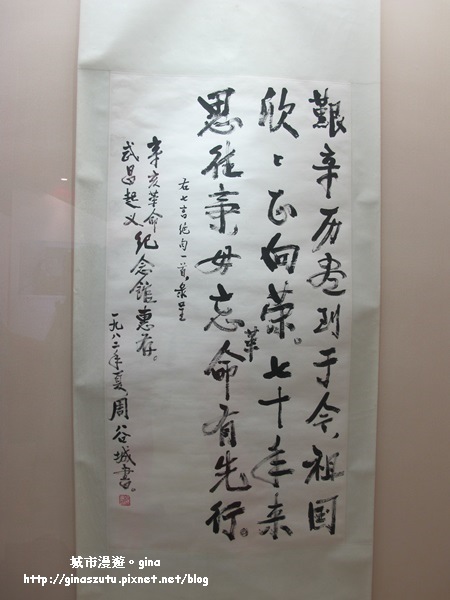 艱辛历盡到于今，祖国
欣々正向荣。七十年来
思往事，毋忘革命有先行。
右七言绝句一首，录呈
辛亥革命
武昌起义纪念館惠存。
一九八二年夏，周谷城書。
城市漫遊。gina
http://ginaszutu.pixnet.net/blog